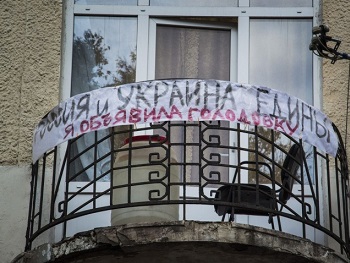 РОССИЯ и УКРАИНА ЕДИНЫ
Я ОБЪЯВИЛА ГОЛОДОВКУ